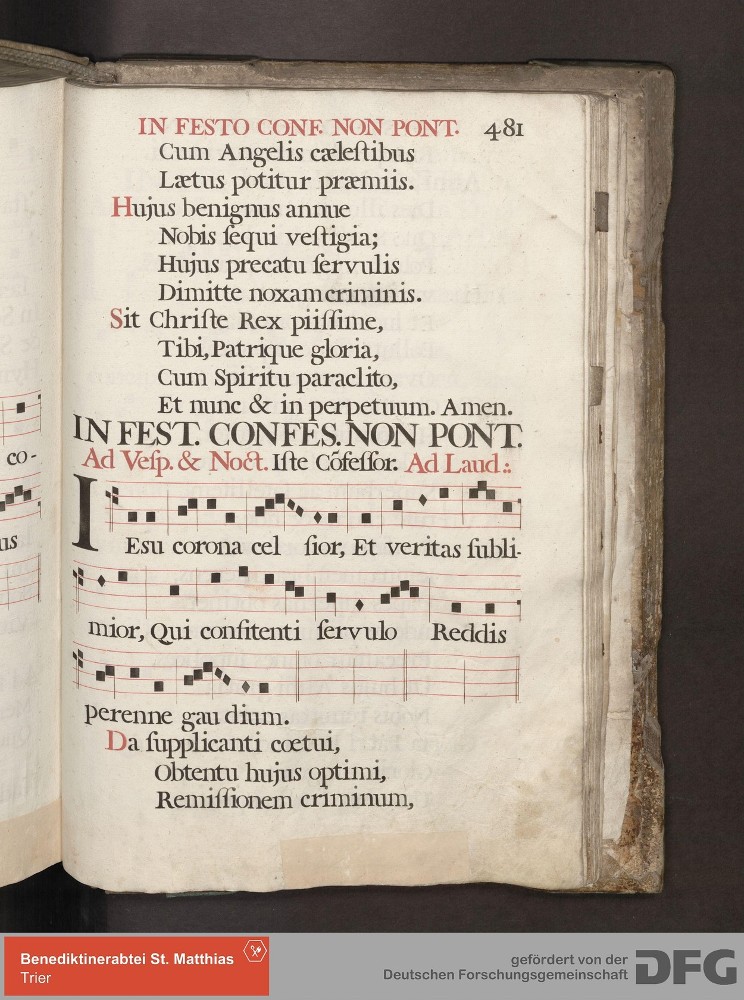 IN FESTO CONF. NON PONT. 481
Cum Angelis cæleſtibus
Lætus potitur præmiis.
Hujus benignus annue
Nobis ſequi veſtigia;
Hujus precatu ſervulis
Dimitte noxam criminis.
Sit Chriſte Rex piiſſime,
Tibi, Patrique gloria,
Cum Spiritu paraclito,
Et nunc & in perpetuum. Amen.
IN FEST. CONFES. NON PONT.
Ad Veſp. & Noct. Iſte Cõfeſſor. Ad Laud.:
co-
IEsu corona cel ſior, Et veritas ſubli-
us
mior, Qui confitenti ſervulo Reddis
perenne gau dium.
Da ſupplicanti cœtui,
Obtentu hujus optimi,
Remiſſionem criminum,
Benediktinerabtei St. Matthias
Trier
gefördert von der
Deutschen Forschungsgemeinschaft
DFG